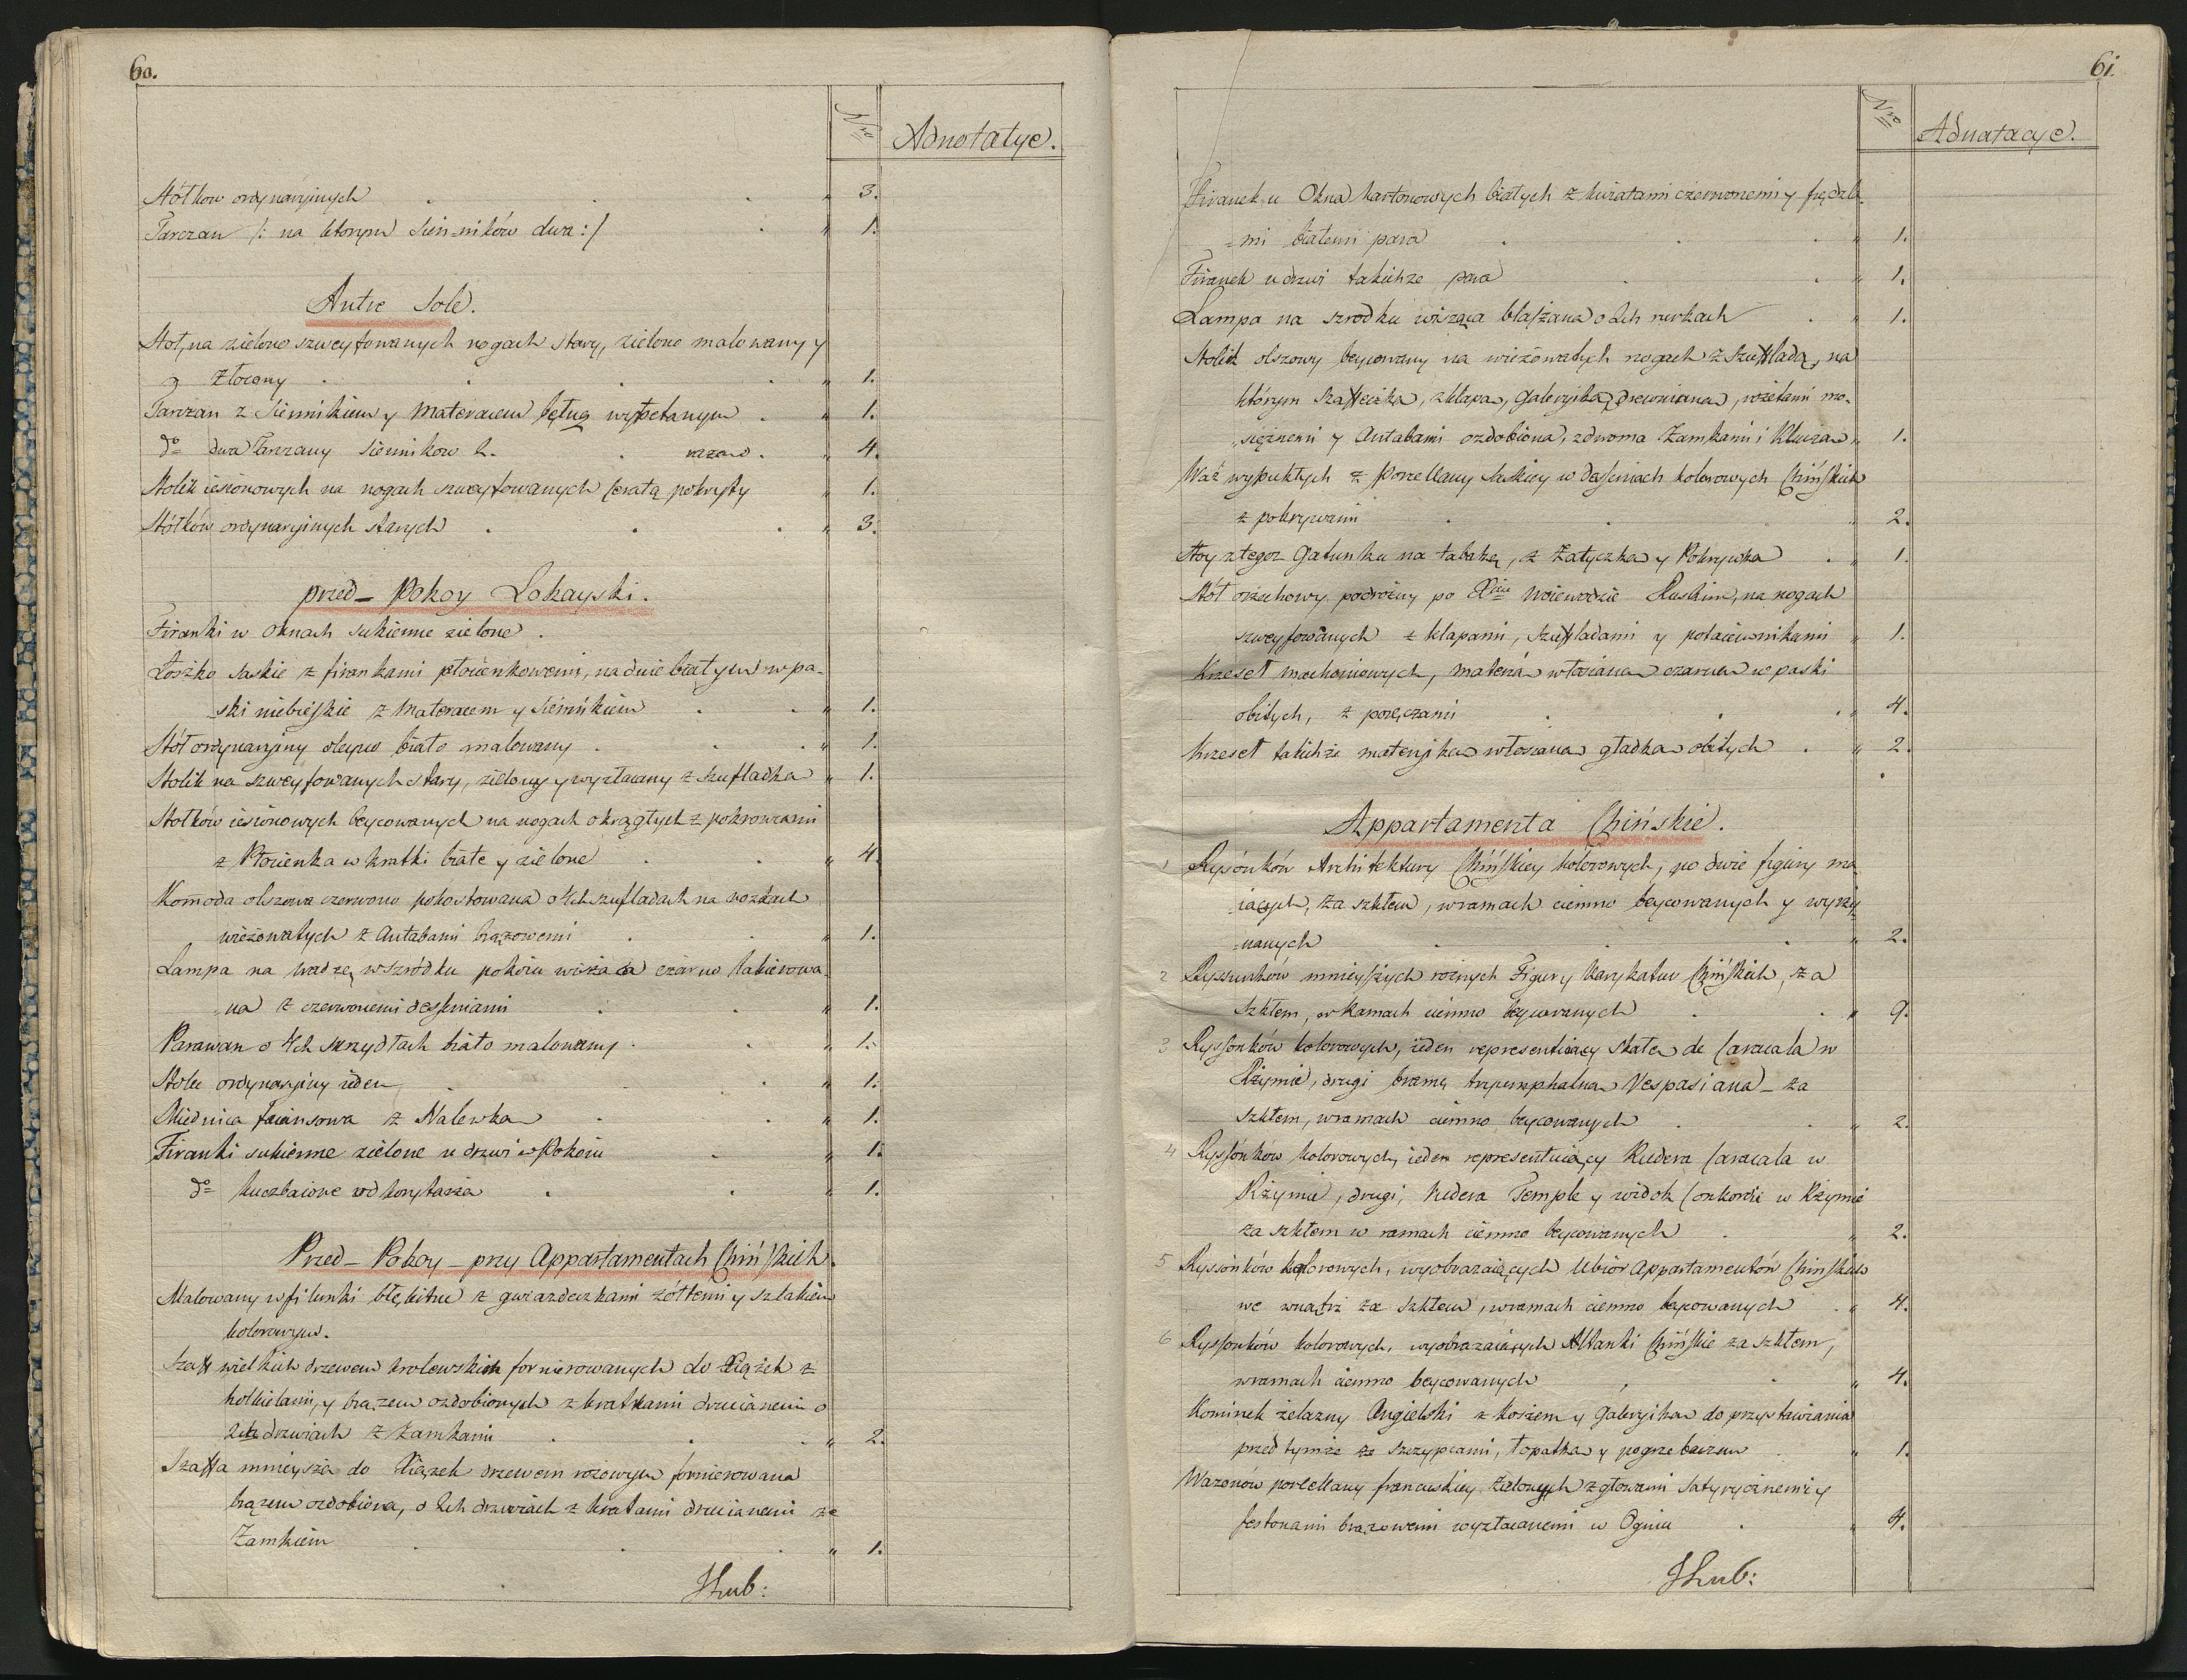 60.
Nro Adnotatye.
Stółkow ordynaryinych „ 3.
Tarczan /: na ktorym Sien=ników dwa :/ „ 1.
Antre Sole.
Stoł, na zielono szweyfowanych nogach stary, zielono malowany y
y Złocony „ 1.
Tarczan z Siennikiem y Materacem wypchanym „ 1.
do dwa Tarczany Siennikow 2. razem „ 4.
Stolik iesionowych na nogach szweyfowanych Ceratą pokryty „ 1.
Stółków ordynaryinych starych „ 3.
przed=Pokoy Lokayski.
Firanki w Oknach sukienne zielone
Łoszko saskie z firankami płocienkowemi, na dnie białym w pa-
ski niebieskie z Materacem y Siennikiem „ 1.
Stół ordynaryiny oleyno biało malowany „ 1.
Stolik na szweyfowanych stary, zielony y wyzłacany z szufladka „ 1.
Stołków iesionowych beycowanych na nogach okrągłych z pokrowcami
z Płocienka w kratki białe y zielone „ 4.
Komoda olszowa czerwono pokostowana o 4ch szufladach na nozkach
wieżowatych z Antabami brązowemi „ 1.
Lampa na wszródku pokoiu wisząca czarno lakierowa-
na z czerwonemi desseniami „ 1.
Parawan o 4ch skrzydłach biało malowany „ 1.
Stolec ordynaryiny ieden „ 1.
Miednica faiansowa z Nalewka „ 1.
Firanki sukienne zielone u drzwi w Pokoiu „ 1.
do kuczbaiowe od korytarza „ 1.
Przed=Pokoy=przy Appartamentach Chińskich.
Malowany w filunki błękitne z gwiazdeczkami żółtemi y szlakiem
kolorowym.
Szaff wielkich drzewem krolewskim fornierowanych do Xiążek z
y brązem ozdobionych z kratkami drucianemi o
2ch drzwiach z Zamkami „ 2.
Szaffa mnieysza do Xiązek drzewem rożowym fornierowana
brązem ozdobiona, o 2ch drzwiach z kratami drucianemi ze
Zamkiem „ 1.
JLub:
61.
Nro Adnatacye.
Firanek u Okna kartonowych białych z kwiatami czerwonemi y frędzla-
=mi białemi para „ 1.
Firanek u drzwi takichże para „ 1.
Lampa na szrodku wisząca blaszana o 2ch rurkach „ 1.
Stolik olszowy beycowany na wieżowatych nogach z szuffladą, na
którym szaffeczka, z klapa, Galeryika drewniana, rozetami mo-
„siężnemi y Antabami ozdobiona, z dwoma Zamkami i Klucza „ 1.
Waz wypukłych z Porcellany Saskiey w desseniach kolorowych Chińskich
z pokrywami „ 2.
Stoy z tegoz Gatunku na tabakę, z Zatyczka y Pokrywka „ 1.
Stół orzechowy podróżny po Xciu Woiewodzie Ruskim, na nogach
szweyfowanych z klapami, szuffladami y potaiemnikami „ 1.
Krzeseł machoniowych, materia włosiana czarna w paski
obitych, z poręczami „ 4.
Krzeseł takichże materyika włosiana gładka obitych „ 2.
Appartamenta Chińskie.
1 Rysónków Architektury Chińskiey kólorowych, po dwie figury ma-
iących, za szkłem, w ramach ciemno beycowanych y wyrzy-
=nanych „ 2.
2 Ryssunków mnieyszych rożnych Figury Karykatur Chińskich, za
szkłem, w Ramach ciemno beycowanych „ 9.
3 Ryssonków kolorowych, ieden representuiący de Caracala w
Rzymie, drugi bramę tryumphalna Vespasiana = za
szkłem, w ramach ciemno beycowanych „ 2.
4 Ryssónków kolorowych, ieden representuiący Rudera Caracala w
Rżymie, drugi, Rudera Temple y widok Conkordi w Rżymie
za szkłem w ramach ciemno beycowanych „ 2.
5 Ryssónków kolorowych, wyobrazaiących Ubior Appartamentów Chinskich
we wnątrz za szkłem, w ramach ciemno beycowanych „ 4.
6 Ryssonków kolorowych, wyobrazaiących Altanki Chińskie za szkłem,
w ramach ciemno beycowanych „ 4.
Kominek żelazny Angielski z koszem y Galeryika do przystawiania
przed tymże ze szczypcami, łopatka y pogrzebaczem „ 1.
Wazonów porcellany francuskiey Zielonych z głowami Satyrycznemi y
festonami brązowemi wyzłacanemi w Ogniu „ 4.
JLub: